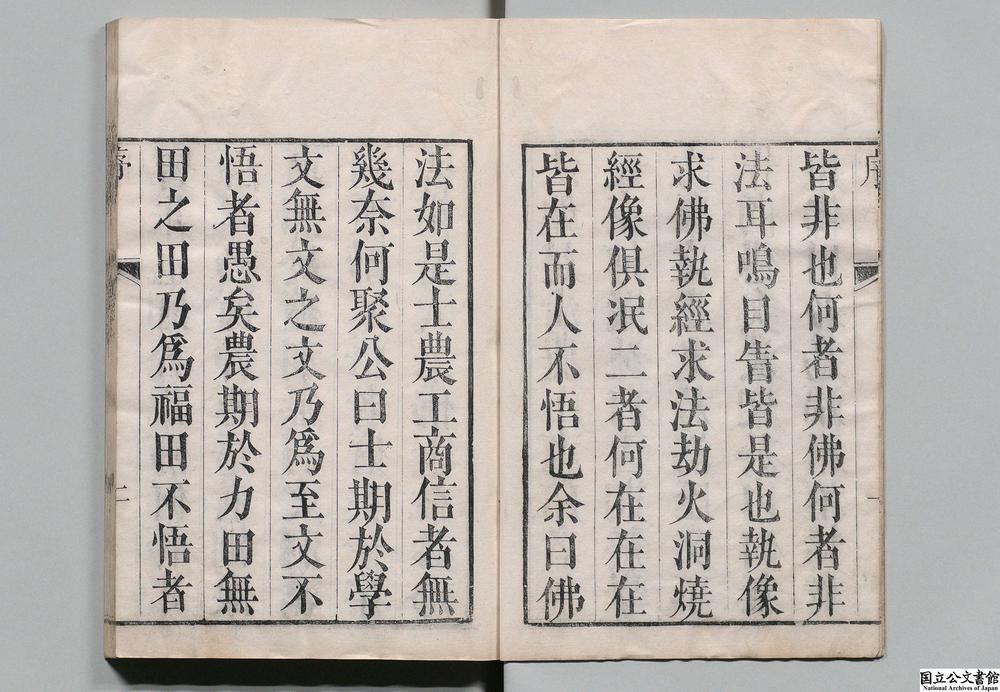 皆非也何者非佛何者非
法耳鳴目眚皆是也執像
求佛執經求法劫火洞燒
經像俱泯二者何在在在
皆在而人不悟也余曰佛
法如是士農工商信者無
幾奈何聚公曰士期於學
文無文之文乃爲至文不
悟者愚矣農期於力田無
田之田乃爲福田不悟者
序
国立公文書館
National Archives of Japan